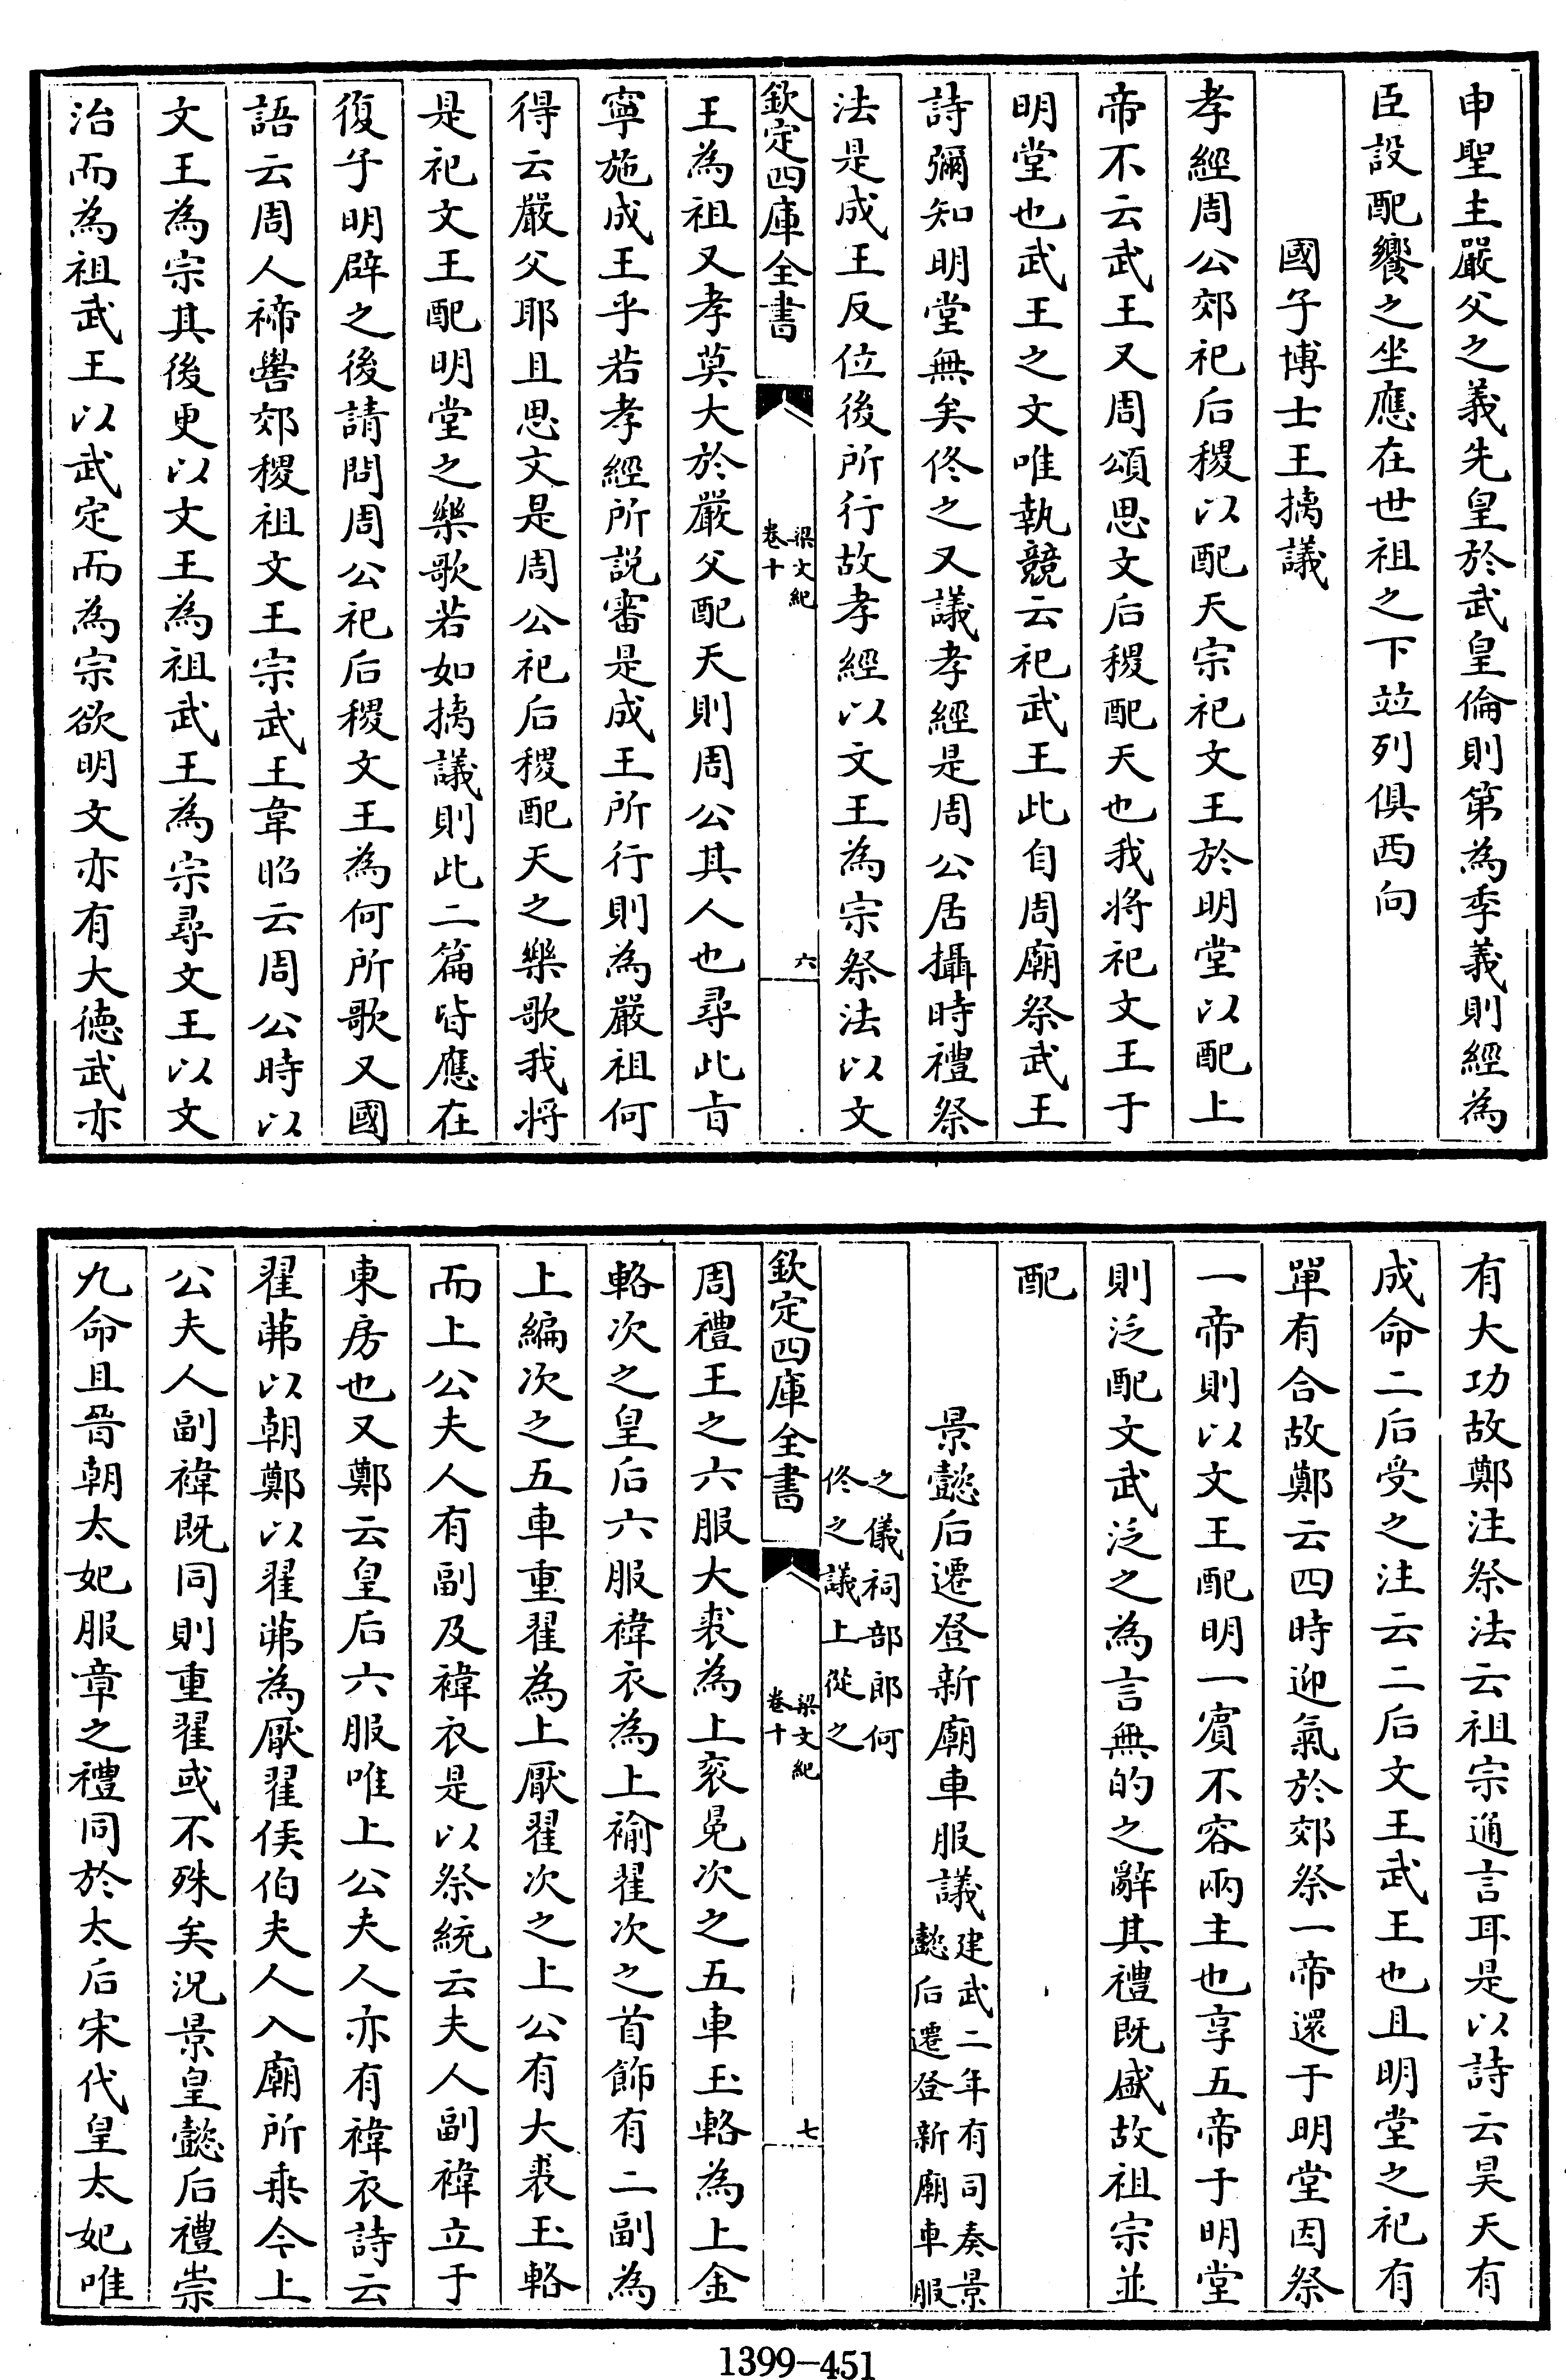 申聖主嚴父之義先皇於武皇倫則第為季義則經為
臣設配饗之坐應在世祖之下並列俱西向
國子博士王摛議
孝經周公郊祀后稷以配天宗祀文王於明堂以配上
帝不云武王又周頌思文后稷配天也我將祀文王于
明堂也武王之文唯執競云祀武王此自周廟祭武王
詩彌知明堂無矣佟之又議孝經是周公居攝時禮祭
法是成王反位後所行故孝經以文王為宗祭法以文
欽定四庫全書
梁文紀
卷十
六
王為祖又孝莫大於嚴父配天則周公其人也尋此㫖
寧施成王乎若孝經所説審是成王所行則為嚴祖何
得云嚴父耶且思文是周公祀后稷配天之樂歌我將
是祀文王配明堂之樂歌若如摛議則此二篇皆應在
復子明辟之後請問周公祀后稷文王為何所歌又國
語云周人禘嚳郊稷祖文王宗武王韋昭云周公時以
文王為宗其後更以文王為祖武王為宗尋文王以文
治而為祖武王以武定而為宗欲明文亦有大徳武亦
有大功故鄭注祭法云祖宗通言耳是以詩云昊天有
成命二后受之注云二后文王武王也且明堂之祀有
單有合故鄭云四時迎氣於郊祭一帝還于明堂因祭
一帝則以文王配明一賓不容兩主也享五帝于明堂
則泛配文武泛之為言無的之辭其禮既盛故祖宗並
配
景懿后遷登新廟車服議建武二年有司奏景
懿后遷登新廟車服
之儀祠部郎何
佟之議上從之
欽定四庫全書
梁文紀
卷十
七
周禮王之六服大裘為上衮冕次之五車玉輅為上金
輅次之皇后六服褘衣為上褕翟次之首飾有二副為
上編次之五車重翟為上厭翟次之上公有大裘玉輅
而上公夫人有副及褘衣是以祭統云夫人副褘立于
東房也又鄭云皇后六服唯上公夫人亦有褘衣詩云
翟茀以朝鄭以翟茀為厭翟侯伯夫人入廟所乗今上
公夫人副褘既同則重翟或不殊矣況景皇懿后禮崇
九命且晉朝太妃服章之禮同於太后宋代皇太妃唯
1399-451